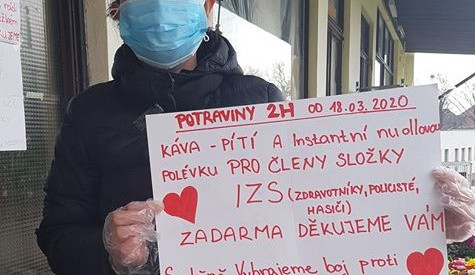 DĚKUJEME
POTRAVINY 2H OD 18.03.2020
KÁVA - PÍTÍ A Instantní nudlovou
POLÉVKU PRO ČLENY SLOŽKY
IZS (ZDRAVOTNÍKY, POLICISTÉ,
HASIČI)
ZADARMA DĚKUJEME VÁM
Vyhrajeme boj proti